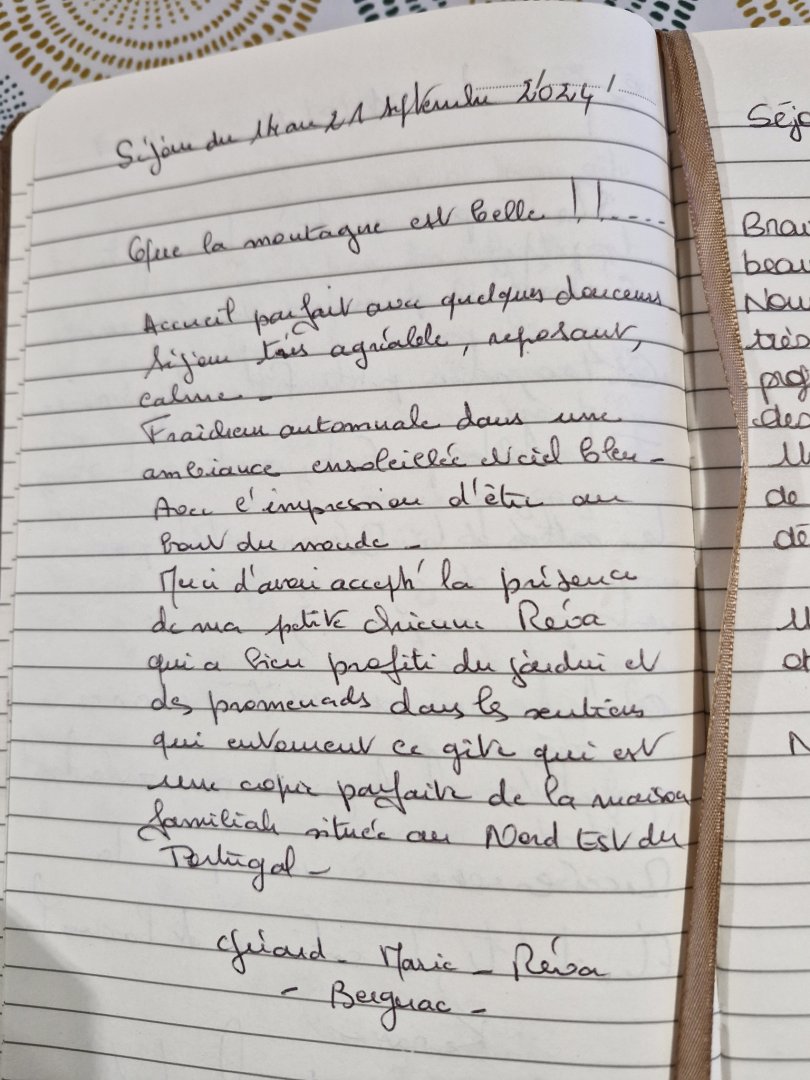 Séjour du 14 au 21 septembre 2024
Que la montagne est belle !!....
Accueil parfait avec quelques douceurs
Séjour très agréable, reposant,
calme -
Fraîcheur automnale dans une
ambiance ensoleillée et ciel bleu -
Avec l'impression d'être au
bout du monde -
Merci d'avoir accepté la présence
de ma petite chienne Réva
qui a bien profité du jardin et
des promenades dans les sentiers
qui entourent ce gîte qui est
une copie parfaite de la maison
familiale située au Nord Est du
Portugal -
Gérard - Marie - Réva
- Bergerac -
Séjo
Brav
beau
Nou
très
prof
des
de